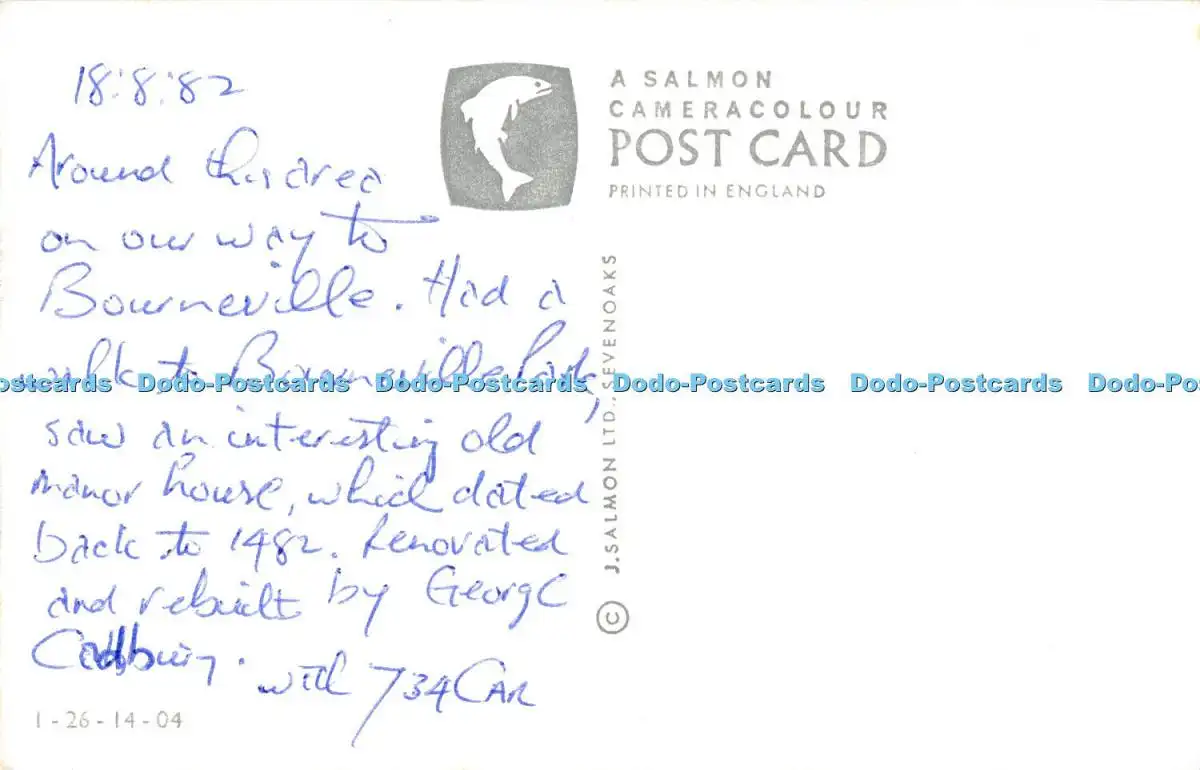 18:8:82
Around this area
on our way to
Bourneville. Had a
walk to Bourneville Park,
saw an interesting old
manor house, which dated
back to 1482. Renovated
and rebuilt by George
Cadbury. with 734 CAR
1-26-14-04
A SALMON
CAMERACOLOUR
POST CARD
PRINTED IN ENGLAND
© J. SALMON LTD., SEVENOAKS
ostcards Dodo-Postcards Dodo-Postcards Dodo-Postcards Dodo-Postcards Dodo-Pos